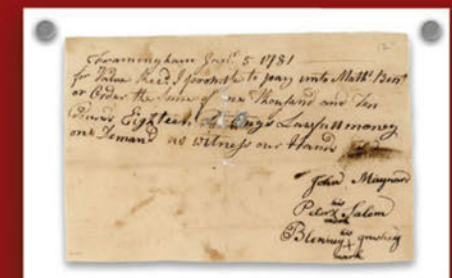 Framingham Jany. 5 1781
for Value Recd I promise to pay unto Mathw
or Order the Sum of one Thousand and Ten
Pound Eighteen Lawfull money
on Demand as witness our Hands
John Maynard
his
Peter X Salem
mark
his
Blaney + Grusha
mark